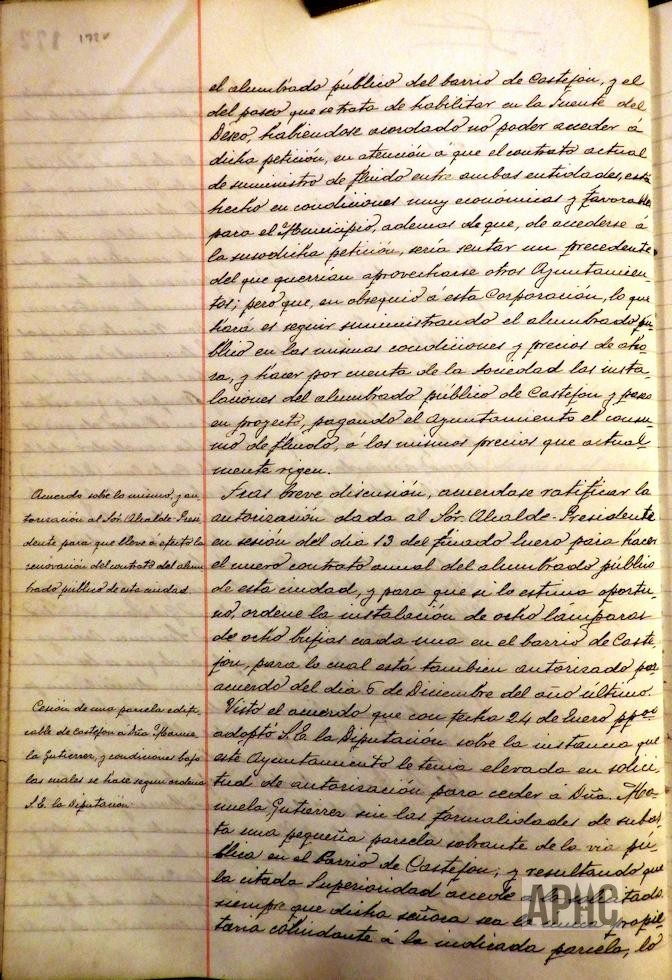 172v
el alumbrado público del barrio de Castejon, y el
del paseo que se trata de habilitar en la Fuente del
Deseo, habiendose acordado no poder acceder á
dicha petición, en atención á que el contrato actual
de suministro de fluido entre ambas entidades, está
hecho en condiciones muy economicas y favorables
para el Municipio, ademas de que, de accederse á
la susodicha petición, sería sentar un precedente
del que querrían aprovecharse otros Ayuntamien-
tos; pero que, en obsequio á esta Corporación, lo que
hará es seguir suministrando el alumbrado pú-
blico en las mismas condiciones y precios de aho-
ra, y hacer por cuenta de la Sociedad las insta-
laciones del alumbrado público de Castejon y paseo
en proyecto, pagando el Ayuntamiento el consu-
mo de fluido, á los mismos precios que actual-
mente rigen.
Acuerdo sobre lo mismo, y au-
torización al Sór. Alcalde-Presi-
dente para que lleve á efecto la
renovación del contrato del alum-
brado público de esta ciudad.
Tras breve discusión, acuerdase ratificar la
autorización dada al Sór. Alcalde-Presidente
en sesión del dia 13 del finado Enero para hacer
el nuevo contrato anual del alumbrado público
de esta ciudad, y para que si lo estima oportu-
no, ordene la instalación de ocho lámparas
de ocho bujias cada una en el barrio de Caste-
jon, para lo cual está tambien autorizado por
acuerdo del dia 6 de Diciembre del año último.
Cesión de una parcela edifi-
cable de Castejon á Dña. Manue-
la Gutierrez, y condiciones bajo
las cuales se hace segun ordena
S.E. la Diputación
Visto el acuerdo que con fecha 24 de Enero ppdo
adoptó S.E. la Diputación sobre la instancia que
este Ayuntamiento le tenia elevada en solici-
tud de autorización para ceder á Dña. Ma-
nuela Gutierrez sin las formalidades de subas-
ta una pequeña parcela sobrante de la via pú-
blica en el Barrio de Castejon; y resultando que
la citada Superioridad accede á lo solicitado
siempre que dicha señora sea la única propie-
taria colindante á la indicada parcela, lo
APHC